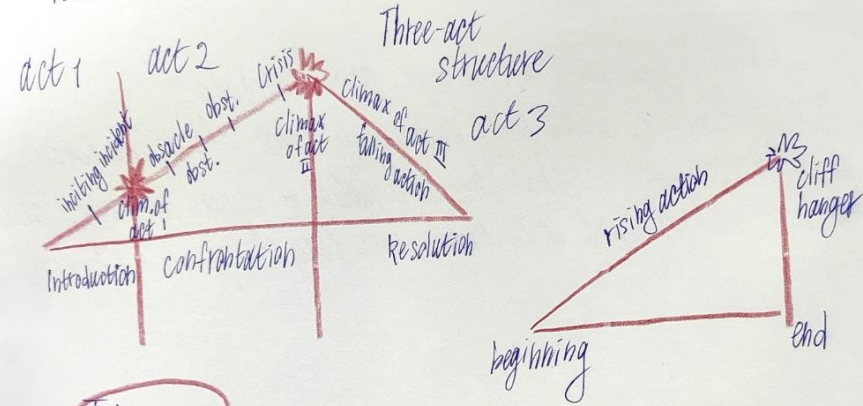 Three-act
structure
act 1
act 2
act 3
inciting incident
clim. of
act 1
obsacle
obst.
obst.
crisis
climax
of act
II
climax of act III
falling action
introduction
confrontation
Resolution
rising action
cliff
hanger
beginning
end